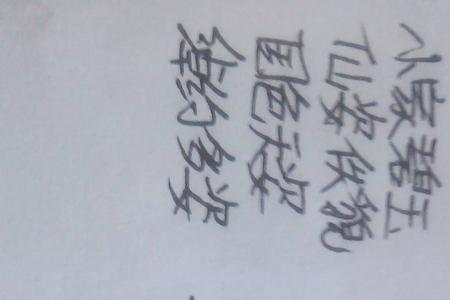 小家碧玉
仙姿佚貌
国色天姿
绰约多姿